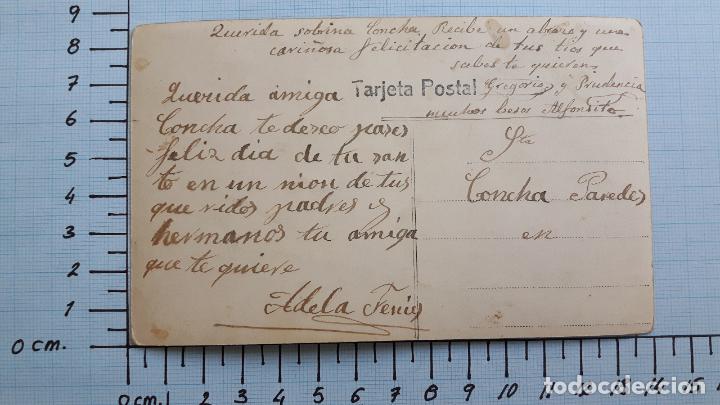 Querida sobrina Concha, Recibe un abrazo y una
cariñosa felicitacion de tus tios que
sabes te quieren
Gregorio y Prudencia
muchos besos Alfonsito
Tarjeta Postal
Querida amiga
Concha te deseo pases
feliz dia de tu san
to en un nion de tus
que ridos padres y
hermanos tu amiga
que te quiere
Adela
Sta
Concha Paredes
en
9
8
7
6
5
4
3
2
1
0 cm.
0 cm. 1 2 3 4 5 6 7 8 9 10 11 12 13 14 15
todocoleccion.net